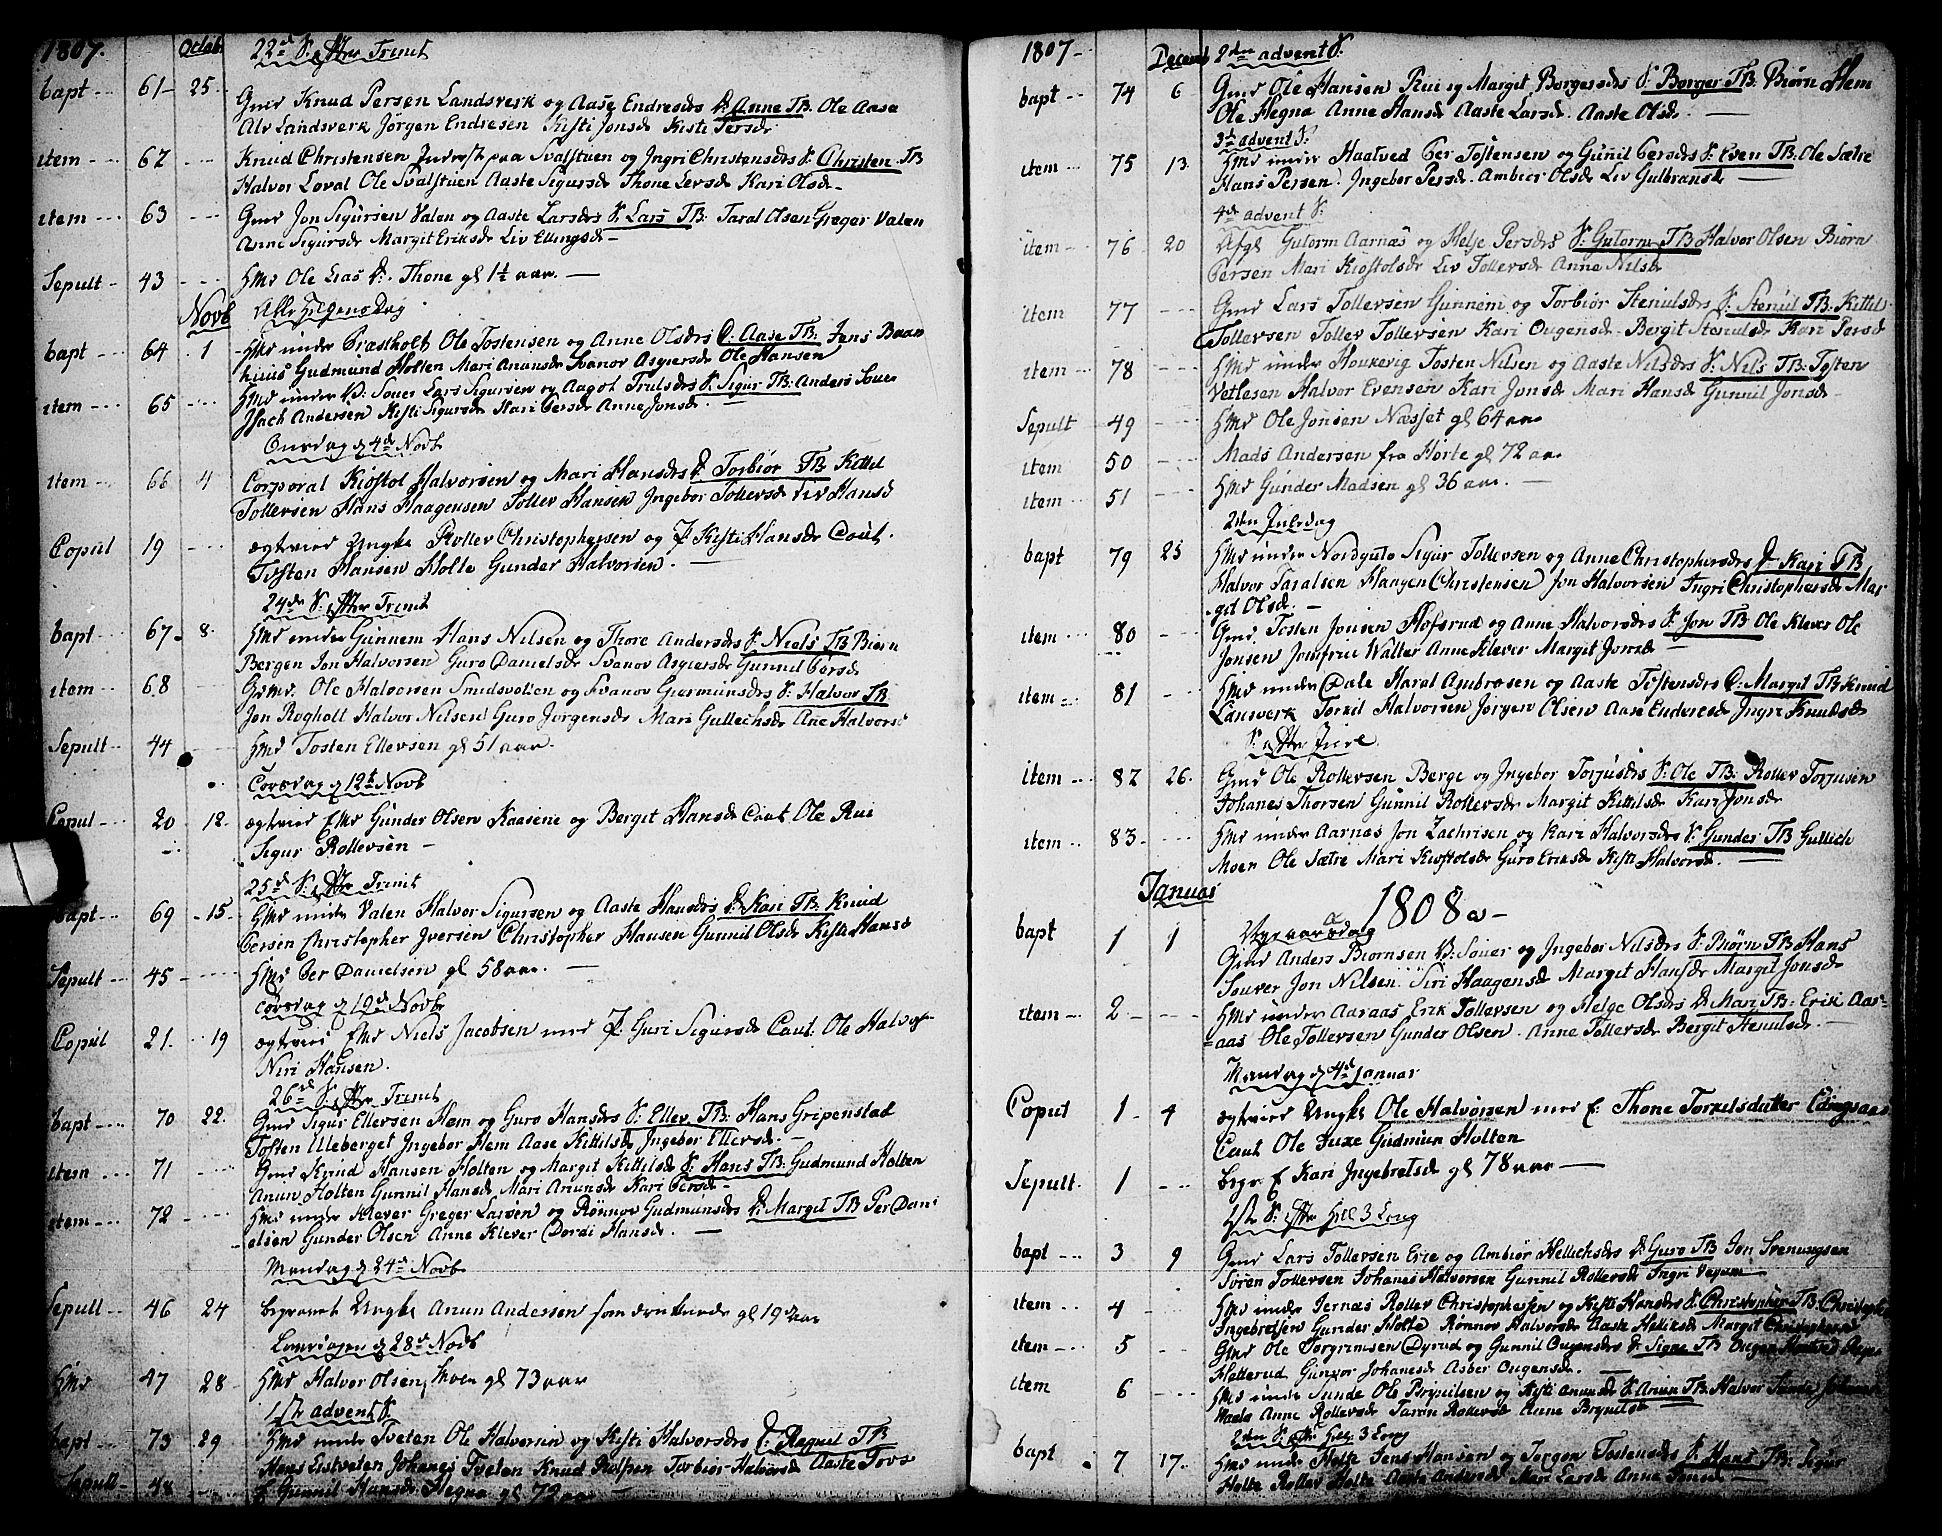 1807. Octob. 22d S. efter Trinit
bapt 61 25. Gmd Knud Persen Landsverk og Aase Endresdr D. Anne TB. Ole Aase
Alv Landsverk Jörgen Endresen Kisti Jonsdr Kisti Persdr
item 62 Knud Christensen Inderst paa Svalstuen og Ingri Christensdr S. Christen TB
Halvor Loval Ole Svalstuen Aaste Sigursdr Thone Lersdr Kari Olsdr
item 63 Gmd Jon Sigursen Valen og Aaste Larsdr S. Lars TB. Taral Olsen Greger Valen
Anne Sigursdr Margit Eriksdr Liv Ellingsdr
Sepult 43 Hmd Ole Lias D. Thone gl 1½ aar.
Novb Alle Helgens Dag
bapt 64 1 Hmd under Præstholt Ole Tostensen og Anne Olsdr D. Aase TB. Jens Baam
huus Gudmund Holten Mari Anunsdr Svanov Asgiersdr Ole Hansen
item 65 Hmd under B. Souer Lars Sigursen og Aagot Trulsdr S. Sigur TB. Anders Souer
Isach Andersen Kisti Sigursdr Kari Persdr Anne Jonsdr.
Onsdag d 4de Novb
item 66 4 Corporal Kiøstol Halvorsen og Mari Hansdr D. Torbiør TB Kittil
Tollersen Hans Haagensen Toller Hansen Ingebor Tollersdr Liv Hansd
Copul 19 ægtviet Ungke Roller Christophersen og P. Kisti Hansdr Caut.
Tosten Hansen Holte Gunder Halvorsen.
24de S. efter Trinit
bapt 67 8. Hmd under Gunnem Hans Nilsen og Thore Andersdr S. Niels TB Biørn
Bergen Jon Halvorsen Guro Danielsdr Svanov Asgiersdr Gunnil Persdr
item 68 Gsmd. Ole Halvorsen Smedsvolien og Svanov Gudmunsdr S. Halvor TB
Jon Rogholt Halvor Nilsen Guro Jorgensdr Mari Gullechsdr Ane Halvorsd
Sepult 44 Hmd Tosten Ellevsen gl 51 aar.
Torsdag d 12te Novb
Copul 20 12. ægtviet Emd Gunder Olsen Kaasene og Bergit Hansdr Caut. Ole Rui
Sigur Rollevsen
25d S. efter Trinit
bapt 69 15 Hmd under Valen Halvor Sigursen og Aaste Hansdr D. Kari TB. Knud
Persen Christopher Iversen Christopher Hansen Gunnil Olsdr Kisti Hansd
Sepult 45 Hmd Per Danielsen gl 58 aar.
Torsdag d 19d Novb
Copul 21. 19 ægtviet Emd Niels Jacobsen med P. Guri Sigursdr Caut. Ole Halvor
Niri Hansen.
26d S. efter Trinit
bapt 70 22. Gmd Sigur Ellevsen Hem og Guro Hansdr S. Ellev TB. Hans Gripenstad
Tosten Ulleberget Ingebor Hem Aase Kittilsdr Ingebor Ellevsdr.
item 71 Gmd Knud Hansen Holten og Margit Kittilsdr S. Hans TB. Gudmund Holten
Anun Holten Gunnil Hansdr Mari Anunsdr Kari Persdr
item 72 Hmd under Klever Greger Larsen og Rønnov Gudmunsdr D. Margit TB Per Dani
elsen Gunder Olsen Anne Klever Dordi Hansdr.
Mandag d 24de Novb
Sepult 46 24 begravet Ungke Anun Andersen som druknede gl 19 aar
Løverdagen d 28de Novb
Hmd 47 28 Hmd Halvor Olsen Moen gl 73 aar
1ste advent S.
bapt 73 29 Hmd under Tveten Ole Halvorsen og Kisti Halvorsdr D. Ragnil TB
Hans Listveten Johanes Tveten Knud Rolfsen Torbiør Halvorsdr Aaste Tovs
Sepult 48 E Gunnil Hansdr Hegna gl 72 aar
1807 Decemb 2den advent S.
bapt 74 6 Gmd Ole Hansen Rui og Margit Borgersdr S. Borger TB. Biørn Hem
Ole Hegna Anne Hansdr Aaste Larsdr. Aaste Olsdr.
3de advent S.
item 75 13. Hmd under Haatved Per Tostensen og Gunnil Persdr S. Even TB. Ole Sætre
Hans Persen. Ingebor Persdr. Ambiør Olsdr Liv Gulbransdr
4de advent S.
item 76 20 Afgl Gutorm Aarnas og Helje Persdr S. Gutorm TB Halvor Olsen Biørn
Persen Mari Kiøstolsdr Liv Tollersdr Anne Nilsdr
item 77 Gmd Lars Tollevsen Gunnem og Torbiør Stenulsdr S. Stenul TB. Kittil
Tollevsen Tollev Tollevsen Kari Ougensdr. Bergit Stenulsdr Kari Persdr
item 78 Hmd under Houkevig Tosten Nilsen og Aaste Nilsdr S. Nils TB. Tosten
Vetlesen Halvor Evensen Kari Jonsdr Mari Hansdr Gunnil Jonsdr
Sepult 49 Hmd Ole Jonsen Næsset gl 64 aar
item 50 Mads Andersen fra Hørte gl 72 aar
item 51 Hmd Gunder Madsen gl 36 aar.
2den Juledag
bapt 79 25 Hmd under Nordgule Sigur Tollevsen og Anne Christophersdr D. Kari TB
Halvor Taralsen Haagen Christensen Jon Halvorsen Ingri Christophersdr Mar
git Olsdr.
item 80 Gmd. Tosten Jonsen Hofsrud og Anne Halvorsdr S. Jon TB Ole Klever Ole
Jonsen Josefrie Walter Anne Klever Margit Jonsdr
item 81 Hmd under Dale Haral Ambrosen og Aaste Tostensdr D. Margit TB Knud
Lanverk Torkil Halvorsen Jörgen Olsen Aase Enderesdr Ingri Knudsdr
S. efter Juul
item 82 26. Gmd Ole Rollevsen Berge og Ingebor Torjusdr S. Ole TB. Rollev Torjusen
Johanes Thorsen Gunnil Rollevsdr Margit Kittilsdr Kari Jonsdr
item 83 Hmd under Aarnas Jon Zachrisen og Kari Halvorsdr S. Gunder TB Gullich
Moen Ole Sætre Mari Kiøstolsdr Guro Eriksdr Kisti Halvorsdr.
Januar 1808
Nyeaarsdag
bapt 1 1 Gmd Anders Biørnsen B. Souer og Ingebor Nilsdr S. Biørn TB Hans
Souver Jon Nilsen. Siri Haagensdr Margit Hansdr Margit Jonsdr
item 2 Hmd under Aaraas Erik Tollevsen og Helge Olsdr D. Mari TB. Erik Aar
aas Ole Tollevsen Gunder Olsen. Anne Tollevsdr Bergit Stenulsdr
Mandag d 4de Januar
Copul 1 4 ægtviet Ungke Ole Halvorsen med E. Thone Torkelsdatter Edingsaas
Caut Ole Juxe Gudmun Holten
Sepult. 1 begr. E Kari Ingebretsdr gl 78 aar
1ste S. efter Hell 3 Kong
bapt 3 9 Gmd Lars Tollevsen Erie og Ambiør Hellichsdr D. Guro TB Jon Svenungsen
Sören Tollevsen Johanes Halvorsen Gunnil Rollevsdr Ingri Vepem
item 4 Hmd under Jernæs Rollev Christophersen og Kisti Hansdr S. Christopher TB. Christoph
Ingebretsen Gunder Holte Rønnov Halvorsdr Aaste Hellikdr Margit Christophersd
item 5 Gmd Ole Torgrimsen Dyrud og Gunnil Ougensdr D. Signe TB Ougen Haatved
Hotterud Gunvor Johanesdr Asber Ougensdr.
item 6 Hmd under Sunde Ole Brynilsen og Kisti Anunsdr S. Anun TB. Halvor Sunde Johanes
Vaala Anne Rollevsdr Taran Rollevsdr Anne Brynilsdr
2den S. efter Hell. 3 Kong
bapt 7 17. Hmd under Holte Jens Hansen og Torgon Tostensdr S. Hans TB. Sigur
Holte Rollev Holte Aaste Andersdr Mari Larsdr Anne Jonsdr